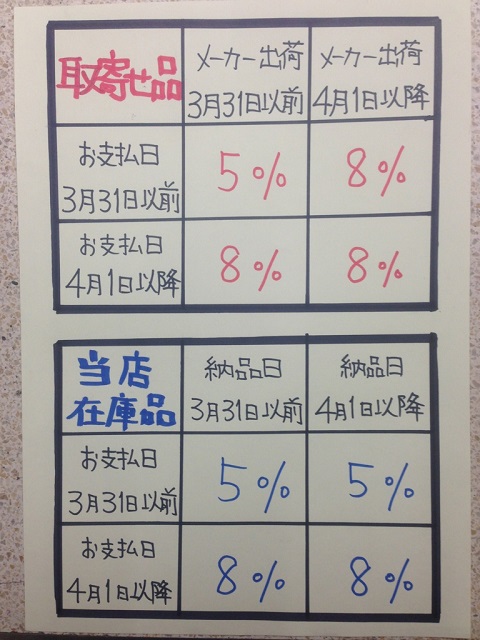 取寄せ品 メーカー出荷 3月31日以前 メーカー出荷 4月1日以降
お支払日 3月31日以前 5% 8%
お支払日 4月1日以降 8% 8%
当店在庫品 納品日 3月31日以前 納品日 4月1日以降
お支払日 3月31日以前 5% 5%
お支払日 4月1日以降 8% 8%